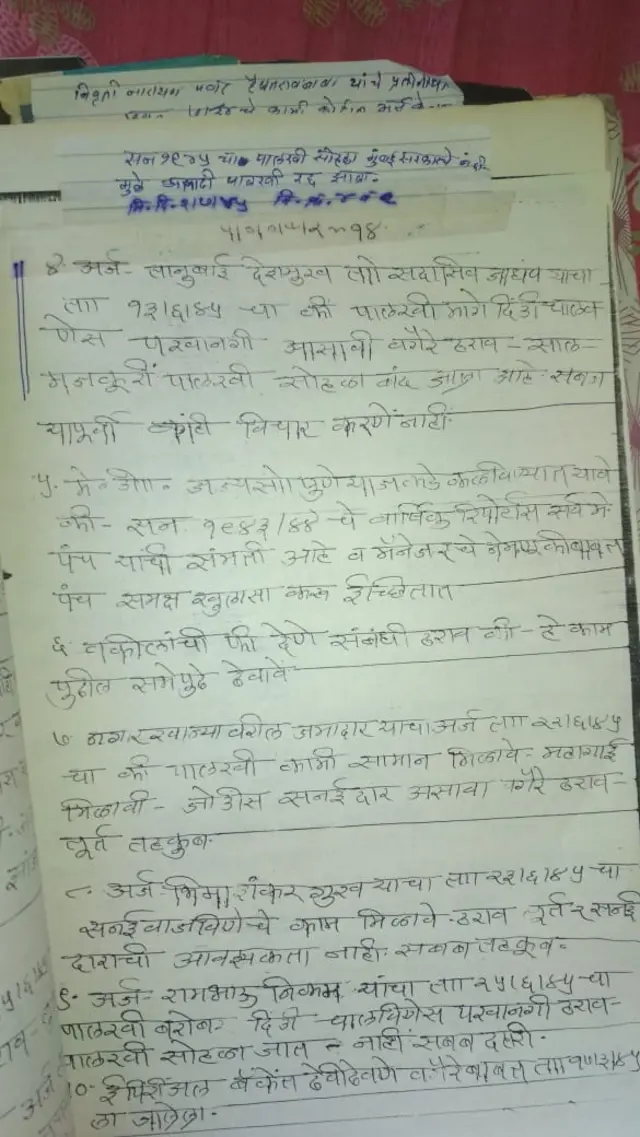 निवृत्ती नारायण पवार हैबतरावबाबा यांचे प्रतीनीधी
कामी
सन १९४५ चा पालखी सोहळा मुंबई सरकारचे बंदी
मुळे आळंदी पालखी रद्द झाला.
१४
४ अर्ज - तानुबाई देशमुख ता॥ सदासिव जाधव याचा
ता॥ १३।६।४५ चा की पालखी मागे दिंडी चालव
णेस परवानगी असावी वगैरे ठराव - साल
मजकूरीं पालखी सोहळा बंद झाला आहे सबब
याप्रती कांही विचार करणें नाही.
५. मे॰ डी॰ जज्यसो पुणे याजकडे कळविण्यात यावे
की - सन १९४३/४४ चे वार्षिक रिपोर्टास सर्व मे.
पंच यांची संमती आहे व मॅनेजरचे नेमणूकीबाबत
पंच समक्ष खुलासा करू ईच्छितात
६ वकीलांची फी देणे संबंधी ठराव की - हे काम
पुढील सभेपुढे ठेवावे
७ नगारखान्यावरील जमादार याचा अर्ज ता॥ २२।६।४५
चा की पालखी कामी सामान मिळावे - महागाई
मिळावी - जोडीस सनईदार असावा वगैरे ठराव -
तूर्त तहकुब.
८ अर्ज - भिमाशंकर गुरव याचा ता॥ २३।६।४५ चा
सनई वाजविणेचे काम मिळावे ठराव तूर्त सनई
दाराची आवश्यकता नाही. सबब तहकूब -
९. अर्ज - रामभाऊ निकम यांचा ता॥ २५।६।४५ चा
पालखी बरोबर दिंडी चालविणेस परवानगी ठराव -
पालखी सोहळा जात - नाही सबब दप्तरी.
१० - ईंपिरीअल बँकेंत ठेवी ठेवणे वगैरे बाबत ता॥
ला